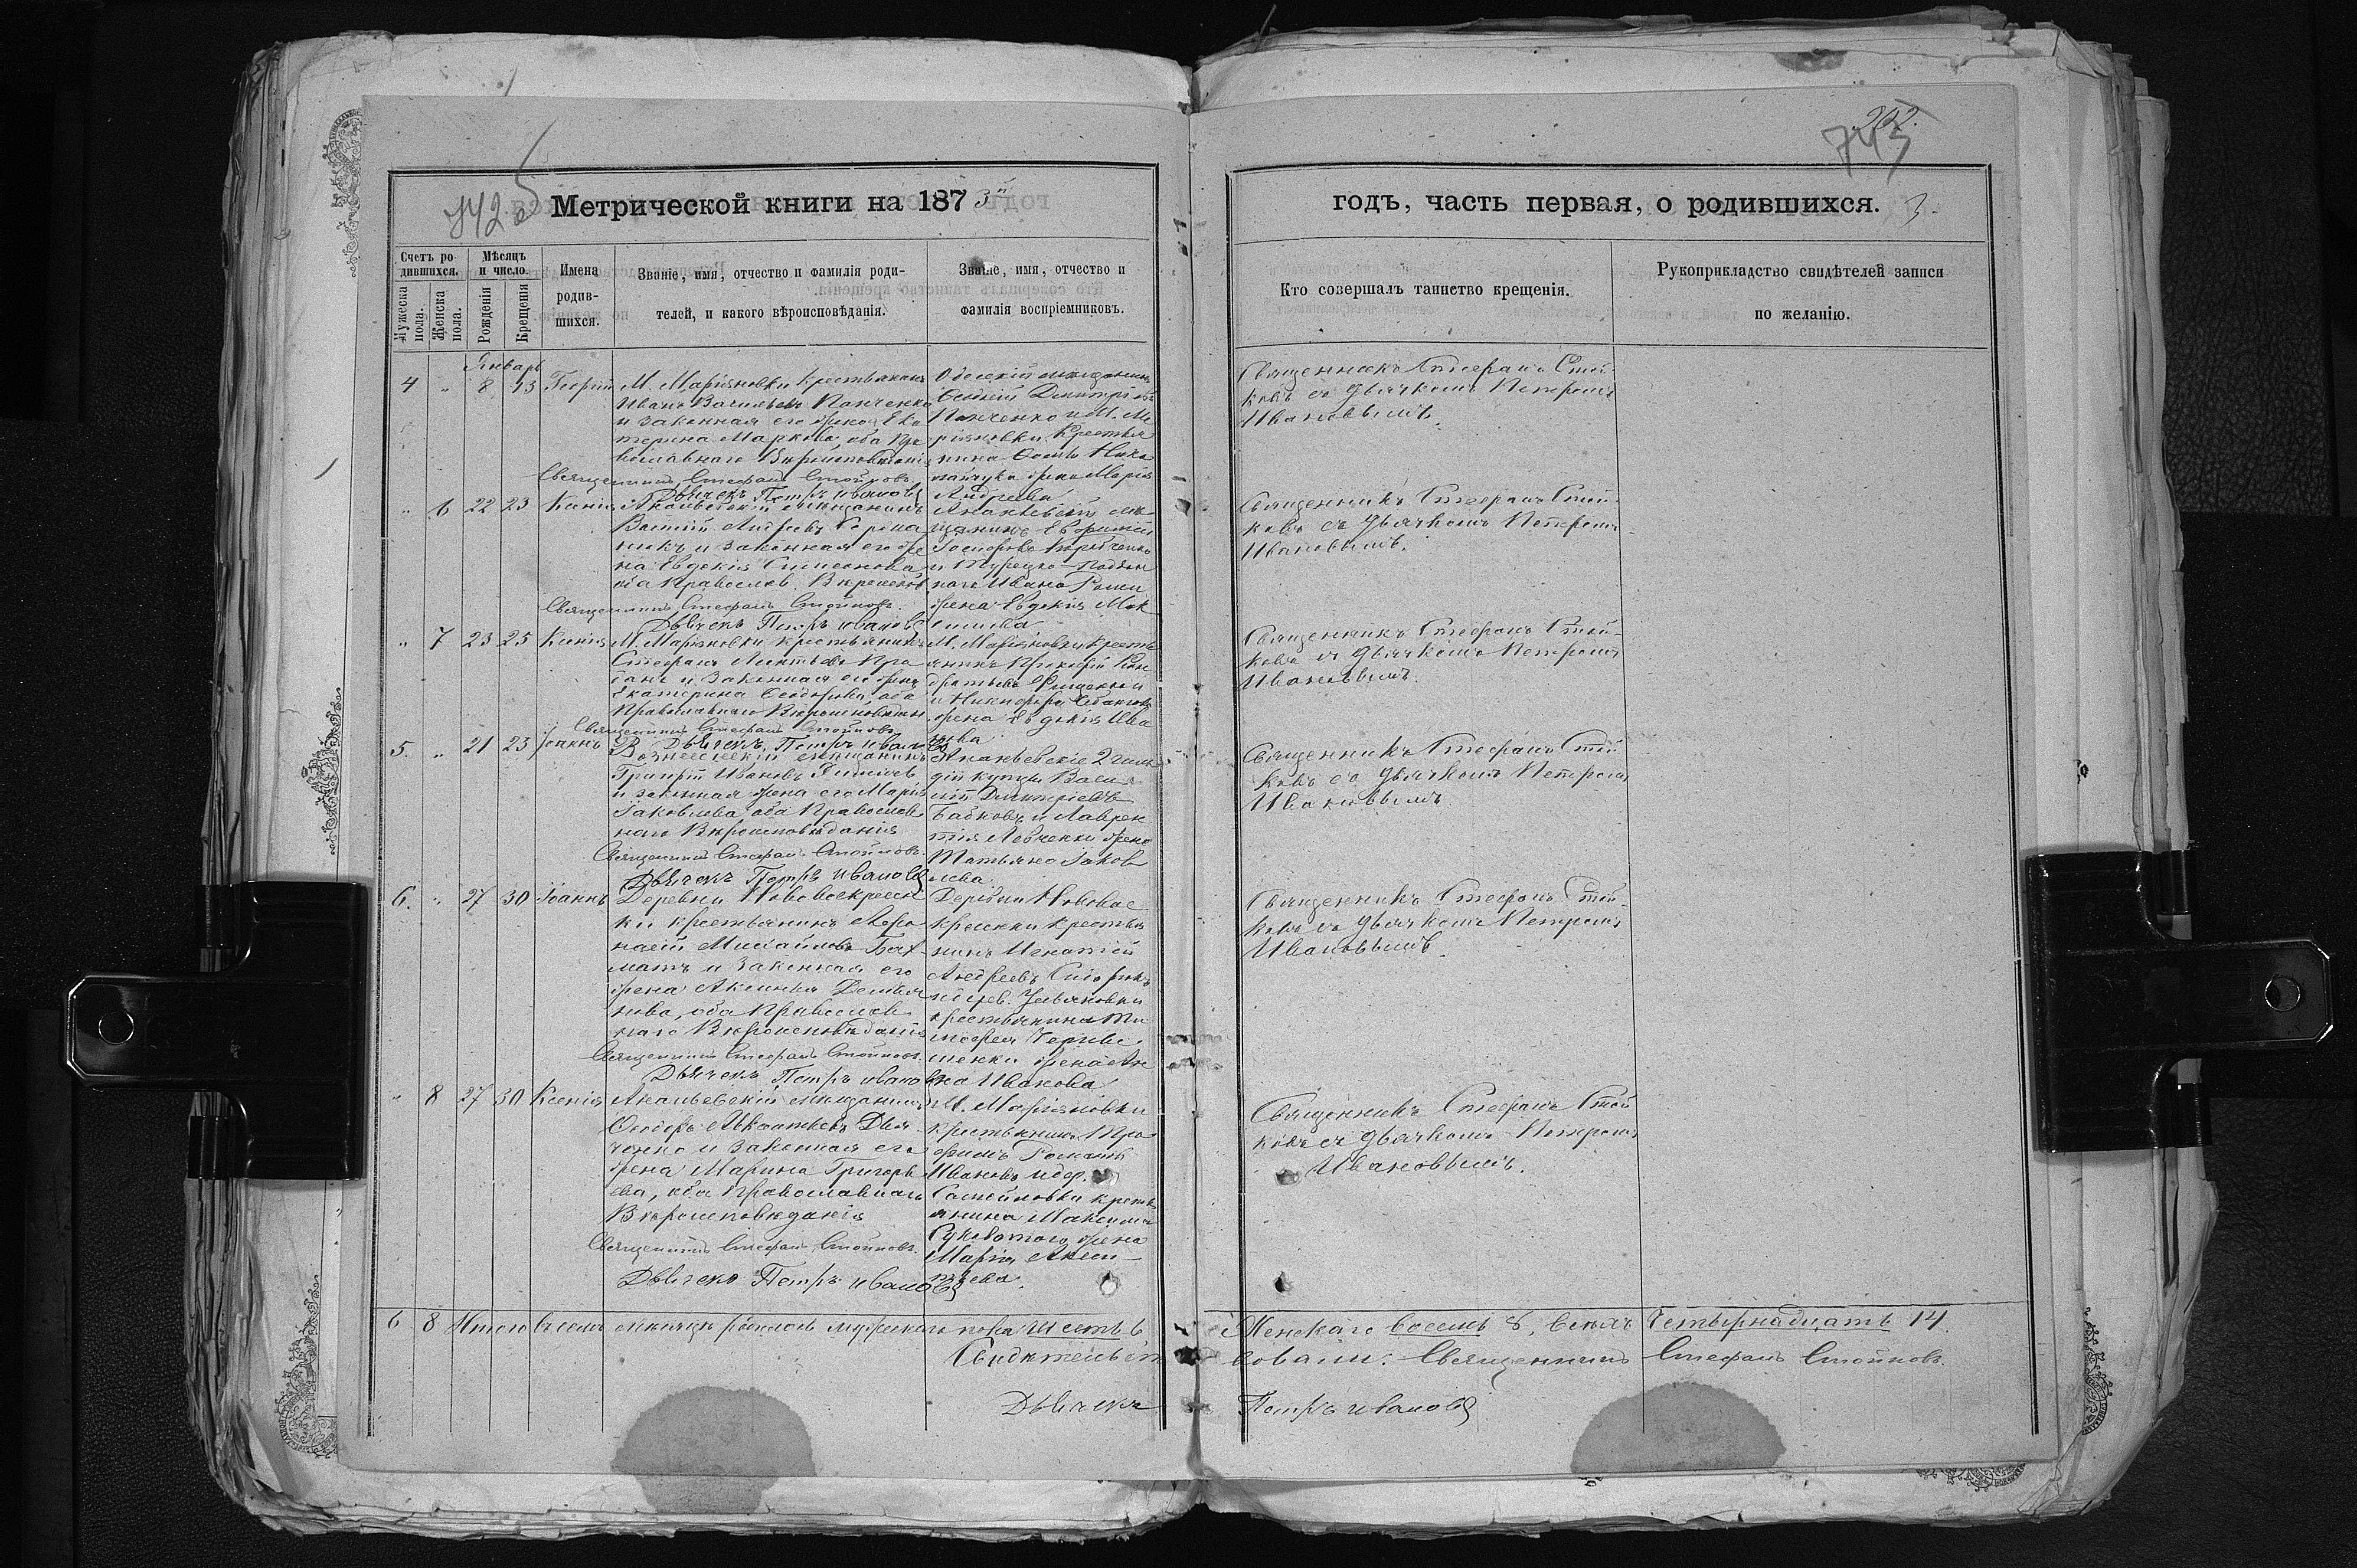 742 об
Метрической книги на 1873й
Счетъ ро-
дившихся.
Мужеска
пола.
Женска
пола.
Мѣсяцъ
и число
Рожденія
Крещенія
Имена
родив-
шихся.
Званіе, имя, отчество и фамилія роди-
телей, и какого вѣроисповѣданія.
Званіе, имя, отчество и
фамилія воспріемниковъ.
Январь
4 " 8 13 Георгій
М. Маріяновки Крестьянинъ
Иванъ Васильевъ Панченко
и законная его жена Ека
терина Маркова, оба Пра
вославнаго Вѣроисповѣданія
Священникъ Стефанъ Стойковъ
Дьячекъ Петръ Ивановъ
Одесскій мещанинъ
Димитріевъ
Панченко и М. Ма
ріяновки Крестья
нина Нико
лайчука жена Марія
Андреева
" 6 22 23 Ксенія
Ананьевскій мѣщанинъ
Василій Андреевъ
никъ и законная его же
на Евдокія Симеонова
оба Православ. Вѣроисповѣд
Священникъ Стефанъ Стойковъ.
Дьячекъ Петръ Ивановъ
Ананьевскій мѣ
щанинъ Евфимій
и Турецко-поддан
наго Ивана
жена Евдокія Мак
симова
" 7 23 25 Ксенія
М. Маріяновки крестьянинъ
Стефанъ Леонтьевъ Про
данъ и законная его жена
Екатерина Феодорова, оба
Православнаго Вѣроисповѣдан.
Священникъ Стефанъ Стойковъ
Дьячекъ Петръ Ивановъ
М. Маріяновки Кресть
янинъ Прокофій Кон
дратьевъ
и Никифора
жена Евдокія Ива
нова
5. " 21 23 Іоаннъ
Вознесенскій мѣщанинъ
Григорій Ивановъ
и законная жена его Марія
Іаковлева, оба Православ
наго Вѣроисповѣданія
Священникъ Стефанъ Стойковъ
Дьячекъ Петръ Ивановъ
Ананьевскіе 2 гиль
діи купцы Васи
лій Димитріевъ
Бабковъ и Лаврен
тія Левченки жена
Татьяна Іаков
лева
6. " 27 30 Іоаннъ
Деревни Нововоскресен
ки крестьянинъ Афа
насій Михайловъ Бах
матъ и законная его
жена Аксинья Демья
нова, оба Православ
наго Вѣроисповѣданія
Священникъ Стефанъ Стойковъ
Дьячекъ Петръ Ивановъ
Деревни Нововос
кресенки Крестья
нинъ Игнатій
Андреевъ
и дер. Ульяновки
крестьянина Ти
мофея
жена Ан
на Иванова
" 8 27 30 Ксенія
Ананьевскій мѣщанинъ
Феодоръ Дья
ченко и законная его
жена Марина Григорь
ева, оба Православнаго
Вѣроисповѣданія
Священникъ Стефанъ Стойковъ.
Дьячекъ Петръ Ивановъ
М. Маріяновки
крестьянинъ Тро
фимъ
Ивановъ и дер.
крестья
янина Максима
жена
Марія
6 8 Итого въ семъ мѣсяцѣ родилось мужскаго пола Шесть 6
Свидѣтельст
Дьячекъ
202.
743
годъ, часть первая, о родившихся. 3
Кто совершалъ таинство крещенія.
Рукоприкладство свидѣтелей записи
по желанію.
Священникъ Стефанъ Стой-
ковъ съ дьячкомъ Петромъ
Ивановымъ.
Священникъ Стефанъ Стой-
ковъ съ дьячкомъ Петромъ
Ивановымъ.
Священникъ Стефанъ Стой-
ковъ съ дьячкомъ Петромъ
Ивановымъ.
Священникъ Стефанъ Стой
ковъ съ дьячкомъ Петромъ
Ивановымъ.
Священникъ Стефанъ Стой-
ковъ съ дьячкомъ Петромъ
Ивановымъ.
Священникъ Стефанъ Стой
ковъ съ дьячкомъ Петромъ
Ивановымъ.
Женскаго восемь 8, всѣхъ Четырнадцать 14.
вовали: Священникъ Стефанъ Стойковъ.
Петръ Ивановъ